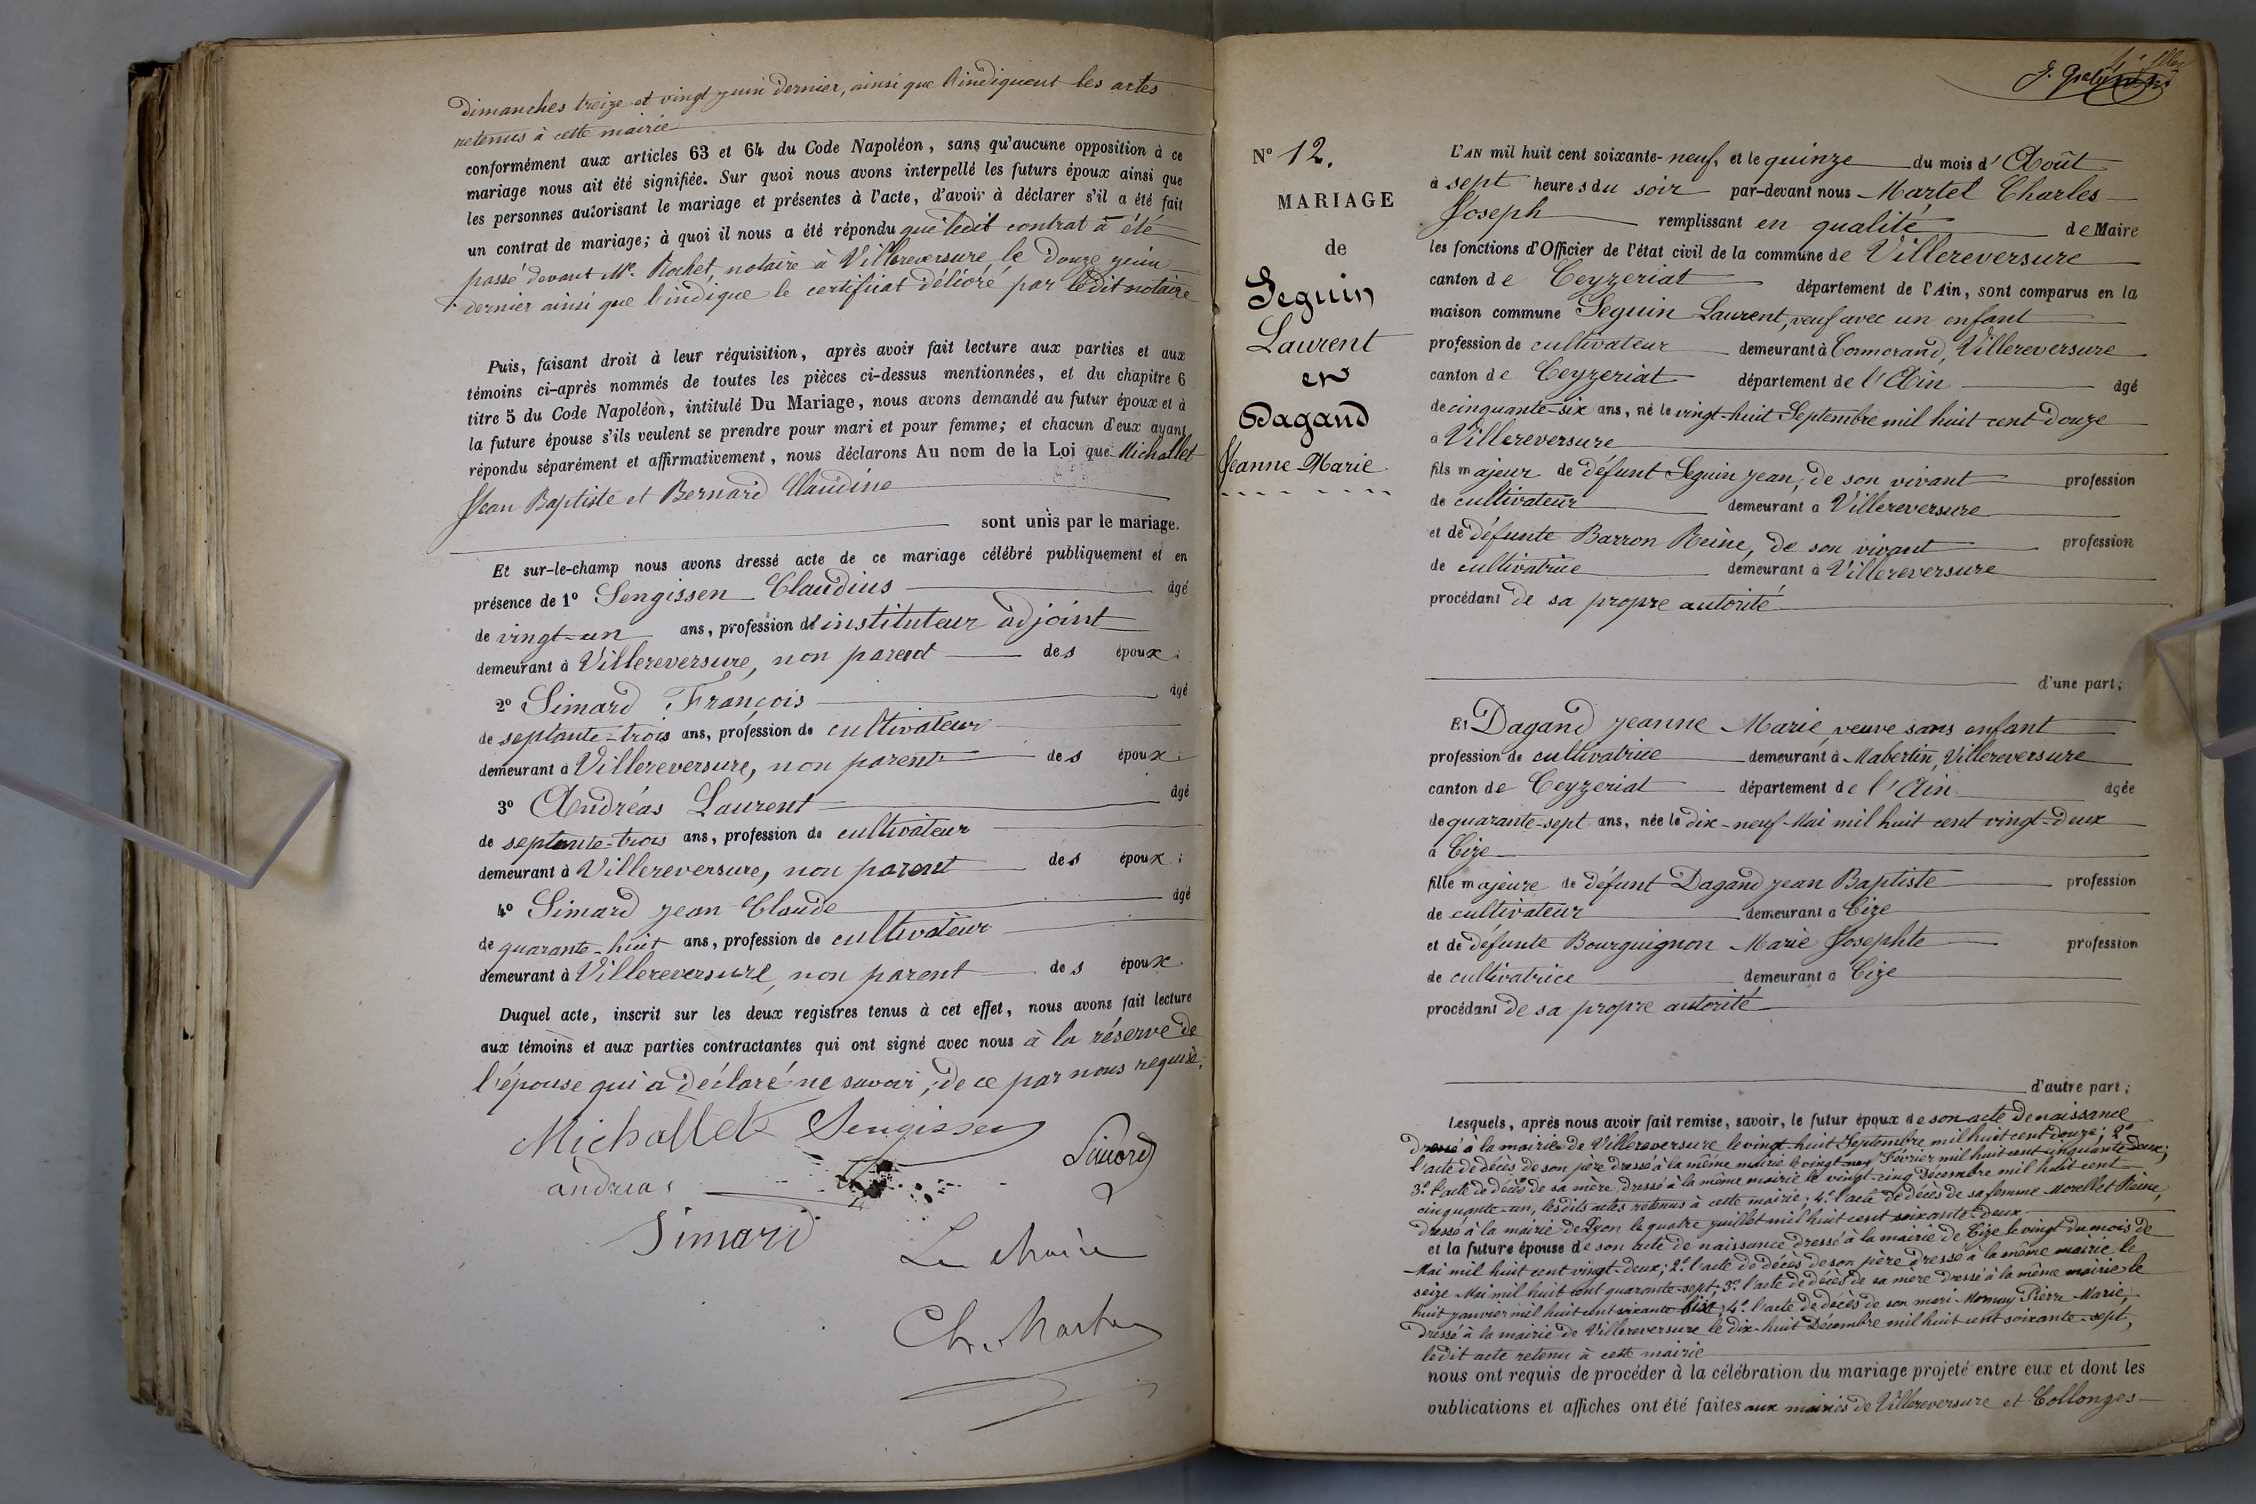 dimanches treize et vingt juin dernier, ainsi que l'indiquent les actes
retenus à cette mairie
conformément aux articles 63 et 64 du Code Napoléon, sans qu'aucune opposition à ce
mariage nous ait été signifiée. Sur quoi nous avons interpellé les futurs époux ainsi que
les personnes autorisant le mariage et présentes à l'acte, d'avoir à déclarer s'il a été fait
un contrat de mariage; à quoi il nous a été répondu que ledit contrat a été
passé devant Me. Rochet, notaire à Villereversure le douze juin
dernier ainsi que l'indique le certificat délivré par ledit notaire
Puis, faisant droit à leur réquisition, après avoir fait lecture aux parties et aux
témoins ci-après nommés de toutes les pièces ci-dessus mentionnées, et du chapitre 6
titre 5 du Code Napoléon, intitulé Du Mariage, nous avons demandé au futur époux et à
la future épouse s'ils veulent se prendre pour mari et pour femme; et chacun d'eux ayant
répondu séparément et affirmativement, nous déclarons Au nom de la Loi que Michallet
Jean Baptiste et Bernard Claudine
sont unis par le mariage.
Et sur-le-champ nous avons dressé acte de ce mariage célébré publiquement et en
présence de 1o Sengissen Claudius âgé
de vingt-un ans, profession de instituteur adjoint
demeurant à Villereversure, non parent des époux;
2o Simard François âgé
de septante-trois ans, profession de cultivateur
demeurant à Villereversure, non parent des époux;
3o Andréas Laurent âgé
de septante-trois ans, profession de cultivateur
demeurant à Villereversure, non parent des époux;
4o Simard Jean Claude âgé
de quarante-huit ans, profession de cultivateur
demeurant à Villereversure, non parent des époux.
Duquel acte, inscrit sur les deux registres tenus à cet effet, nous avons fait lecture
aux témoins et aux parties contractantes qui ont signé avec nous à la réserve de
l'épouse qui a déclaré ne savoir, de ce par nous requise.
Michallet Sengissen
Simard
andreas
Simard
Le Maire
Ch. Martel
No 12.
MARIAGE
de
Seguin
Laurent
et
Dagand
Jeanne Marie
L'AN mil huit cent soixante-neuf, et le quinze du mois d'Août
à sept heures du soir par-devant nous Martel Charles
Joseph remplissant en qualité de Maire
les fonctions d'Officier de l'état civil de la commune de Villereversure
canton de Ceyzeriat département de l'Ain, sont comparus en la
maison commune Seguin Laurent, veuf avec un enfant
profession de cultivateur demeurant à Cormorand, Villereversure
canton de Ceyzeriat département de l'Ain âgé
de cinquante-six ans, né le vingt-huit Septembre mil huit cent douze
à Villereversure
fils majeur de défunt Seguin Jean, de son vivant profession
de cultivateur demeurant à Villereversure
et de défunte Barron Reine, de son vivant profession
de cultivatrice demeurant à Villereversure
procédant de sa propre autorité
d'une part;
Et Dagand Jeanne Marie, veuve sans enfant
profession de cultivatrice demeurant à Mabertin, Villereversure
canton de Ceyzeriat département de l'Ain âgée
de quarante-sept ans, née le dix-neuf Mai mil huit cent vingt-deux
à Cize
fille majeure de défunt Dagand Jean Baptiste profession
de cultivateur demeurant à Cize
et de défunte Bourguignon Marie Josephte profession
de cultivatrice demeurant à Cize
procédant de sa propre autorité
d'autre part;
Lesquels, après nous avoir fait remise, savoir, le futur époux de son acte de naissance
dressé à la mairie de Villereversure le vingt-huit Septembre mil huit cent douze; 2o
l'acte de décès de son père dressé à la même mairie le vingt-neuf Février mil huit cent cinquante-deux;
3o. l'acte de décès de sa mère dressé à la même mairie le vingt-cinq Décembre mil huit cent
cinquante-un, lesdits actes retenus à cette mairie; 4o. l'acte de décès de sa femme Morellet Reine,
dressé à la mairie de Lyon le quatre juillet mil huit cent soixante-deux
et la future épouse de son acte de naissance dressé à la mairie de Cize le vingt du mois de
Mai mil huit cent vingt-deux; 2o. l'acte de décès de son père dressé à la même mairie le
seize Mai mil huit cent quarante-sept; 3o. l'acte de décès de sa mère dressé à la même mairie le
huit janvier mil huit cent soixante; 4o. l'acte de décès de son mari Mornay Pierre Marie,
dressé à la mairie de Villereversure le dix-huit Décembre mil huit cent soixante-sept,
ledit acte retenu à cette mairie
nous ont requis de procéder à la célébration du mariage projeté entre eux et dont les
publications et affiches ont été faites aux mairies de Villereversure et Collonges